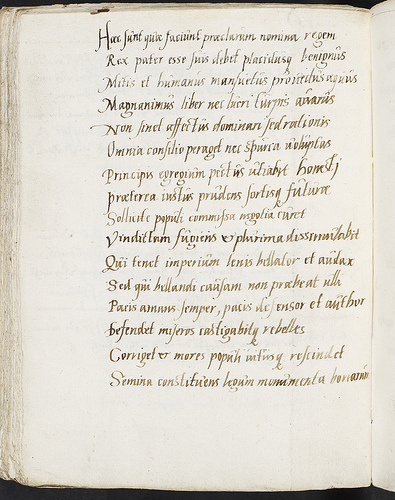 Hæc sunt quæ faciunt præclarum nomina regem
Rex pater esse suis debet placidusq benignus
Mitis et humanus mansuetus providus æquus
Magnanimus liber nec lucri turpis avarus
Non sinet affectus dominari sed rationis
Omnia consilio peraget nec spurca voluptas
Principis egregium pectus vitiabit honesti
Præterea iustus prudens fortisq futuræ
Sollicite populi commissa negotia curet
Vindictam fugiens & plurima dissimulabit
Qui tenet imperium lenis bellator et audax
Sed qui bellandi causam non præbeat ulli
Pacis amans semper, pacis defensor et author
Defendet miseros castigabitq rebelles
Corriget & mores populi vitiisq rescindet
Semina constituens legum monumenta bonarum